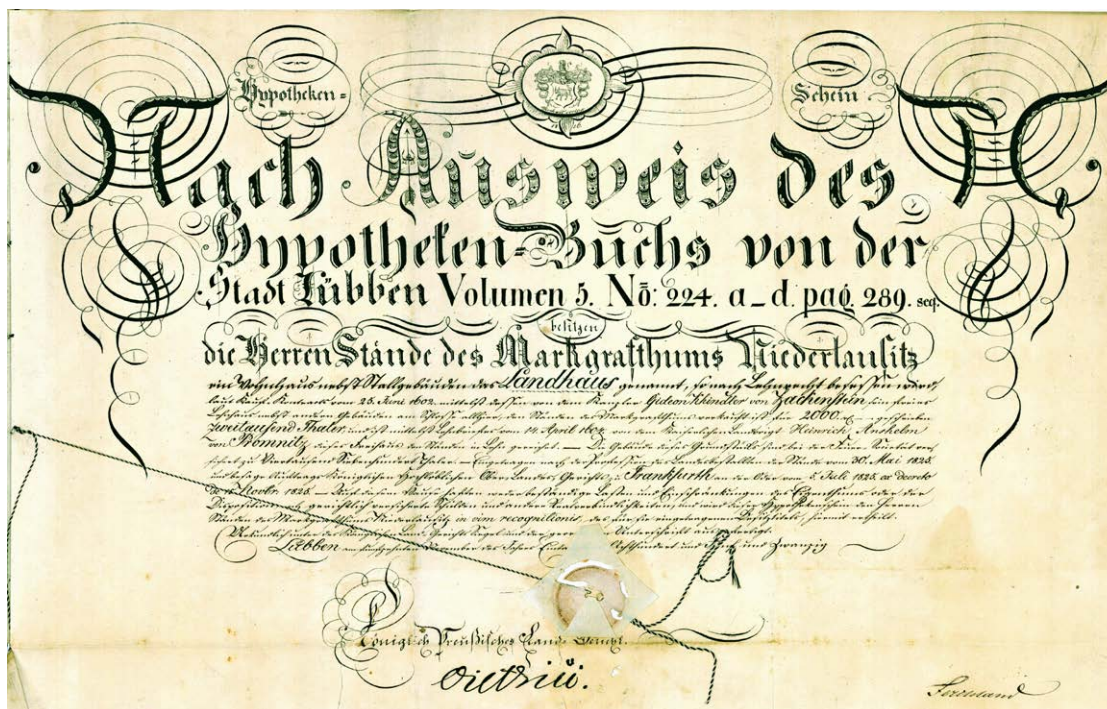 Hypotheken=
Schein.
Nach Ausweis des
Hypotheken=Buchs von der
Stadt Lübben Volumen 5. No: 224. a_d. pag. 289. seq.
besitzen
die Herren Stände des Markgrafthums Niederlausitz
ein Wohnhaus nebst Stallgebäuden das Landhaus genannt, so nach Lehnrecht besessen wird,
laut Kauf-Kontrakts vom 25. Juni 1602. mittelst dessen von dem Kanzler Gideon
andern Gebäuden am Schlosse allhier, den Ständen des Markgrafthums verkauft ist für 2000
Zweitausend Thaler und ist mittelst Lehnbriefes vom 14. April 1604. von dem Kaiserlichen Landvogt Heinrich Anshelm
von Promnitz dieses Freihaus den Ständen in Lehn gereicht. — Die Gebäude dieses Grundstücks sind in der Feuer Societät
zu Viertausend Siebenhundert Thaler. — Eingetragen nach der Landesbestallten der Stände vom 30. Mai 1825.
Königlichen Hochlöblichen Ober Landes Gerichts zu Frankfurth an der Oder vom 5. Juli 1825. ex decreto
Novbr. 1825. — Auf diesem haften weder beständige Lasten und Einschränkungen des Eigenthums oder der
Disposition, gerichtlich versicherte Schulden und andere Realverbindlichkeiten, und wird dieser Hypothekenschein den Herren
Ständen des Markgrafthums Niederlausitz in vim recognitionis, des für sie eingetragenen Besitztitels, hiermit ertheilt.
Urkundlich unter des Königlichen Land Gerichts Siegel und der Unterschrift ausgefertigt.
Lübben am November des Jahres Achthundert und Fünf und Zwanzig
Königlich Preußisches Land Gericht.